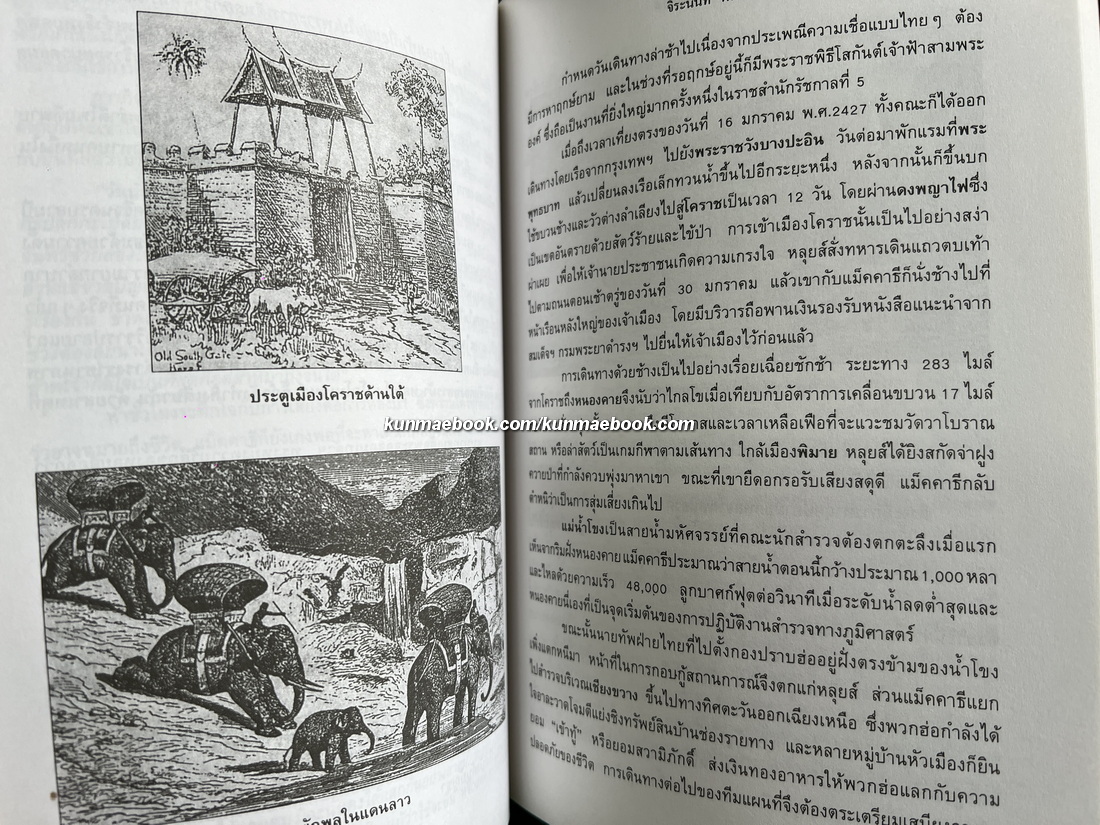 Old South Gate
ประตูเมืองโคราชด้านใต้
kunmaebook.com/kunmaebook.com
พลในแดนลาว
จิระนันท์
กำหนดวันเดินทางล่าช้าไปเนื่องจากประเพณีความเชื่อแบบไทยๆ ต้อง
มีการหาฤกษ์ยาม และในช่วงที่รอฤกษ์อยู่นี้ก็มีพระราชพิธีโสกันต์เจ้าฟ้าสามพระ
องค์ ซึ่งถือเป็นงานที่ยิ่งใหญ่มากครั้งหนึ่งในราชสำนักรัชกาลที่ 5
เมื่อถึงเวลาเที่ยงตรงของวันที่ 16 มกราคม พ.ศ.2427 ทั้งคณะก็ได้ออก
เดินทางโดยเรือจากกรุงเทพฯ ไปยังพระราชวังบางปะอิน วันต่อมาพักแรมที่พระ
พุทธบาท แล้วเปลี่ยนลงเรือเล็กทวนน้ำขึ้นไปอีกระยะหนึ่ง หลังจากนั้นก็ขึ้นบก
ใช้ขบวนช้างและวัวต่างลำเลียงไปสู่โคราชเป็นเวลา 12 วัน โดยผ่านดงพญาไฟซึ่ง
เป็นเขตอันตรายด้วยสัตว์ร้ายและไข้ป่า การเข้าเมืองโคราชนั้นเป็นไปอย่างสง่า
ผ่าเผย เพื่อให้เจ้านายประชาชนเกิดความเกรงใจ หลุยส์สั่งทหารเดินแถวตบเท้า
ไปตามถนนตอนเช้าตรู่ของวันที่ 30 มกราคม แล้วเขากับแม็คคาธีก็นั่งช้างไปที่
หน้าเรือนหลังใหญ่ของเจ้าเมือง โดยมีบริวารถือพานเงินรองรับหนังสือแนะนำจาก
สมเด็จฯ กรมพระยาดำรงฯ ไปยื่นให้เจ้าเมืองไว้ก่อนแล้ว
การเดินทางด้วยช้างเป็นไปอย่างเรื่อยเฉื่อยชักช้า ระยะทาง 283 ไมล์
จากโคราชถึงหนองคายจึงนับว่าไกลโขเมื่อเทียบกับอัตราการเคลื่อนขบวน 17 ไมล์
มีโอกาสและเวลาเหลือเฟือที่จะแวะชมวัดวาโบราณ
สถาน หรือล่าสัตว์เป็นเกมกีฬาตามเส้นทาง ใกล้เมืองพิมาย หลุยส์ได้ยิงสกัดจ่าฝูง
ควายป่าที่กำลังควบพุ่งมาหาเขา ขณะที่เขายืดอกรอรับเสียงสดุดี แม็คคาธีกลับ
ตำหนิว่าเป็นการสุ่มเสี่ยงเกินไป
แม่น้ำโขงเป็นสายน้ำมหัศจรรย์ที่คณะนักสำรวจต้องตกตะลึงเมื่อแรก
เห็นจากริมฝั่งหนองคาย แม็คคาธีประมาณว่าสายน้ำตอนนี้กว้างประมาณ 1,000 หลา
และไหลด้วยความเร็ว 48,000 ลูกบาศก์ฟุตต่อวินาทีเมื่อระดับน้ำลดต่ำสุดและ
หนองคายนี่เองที่เป็นจุดเริ่มต้นของการปฏิบัติงานสำรวจทางภูมิศาสตร์
ขณะนั้นนายทัพฝ่ายไทยที่ไปตั้งกองปราบฮ่ออยู่ฝั่งตรงข้ามของน้ำโขง
เพิ่งแตกหนีมา หน้าที่ในการกอบกู้สถานการณ์จึงตกแก่หลุยส์ ส่วนแม็คคาธีแยก
ไปสำรวจบริเวณเชียงขวาง ขึ้นไปทางทิศตะวันออกเฉียงเหนือ ซึ่งพวกฮ่อกำลังได้
ใจอาละวาดโจมตีแย่งชิงทรัพย์สินบ้านช่องรายทาง และหลายหมู่บ้านหัวเมืองก็ยิน
ยอม "เข้าทู้" หรือยอมสวามิภักดิ์ ส่งเงินทองอาหารให้พวกฮ่อแลกกับความ
ปลอดภัยของชีวิต การเดินทางต่อไปของทีมแผนที่จึงต้องตระเตรียมเสบียง